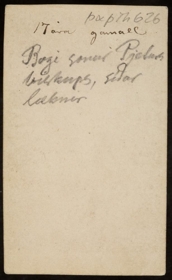 17 ára gamall
Bogi sonur Pjeturs
biskups, síðar
læknir